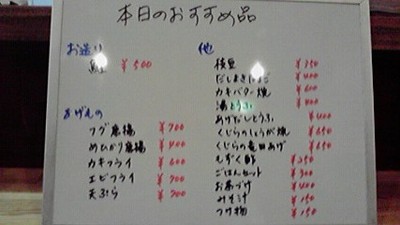 本日のおすすめ品
お造り
¥500
あげもの
フグ唐揚 ¥700
めひかり唐揚 ¥400
カキフライ ¥600
エビフライ ¥700
天ぷら ¥700
他
枝豆 ¥350
だしまきたまご ¥400
カキバター焼 ¥600
湯とうふ ¥400
あげだしとうふ ¥400
くじらのしょうが焼 ¥650
くじらの竜田あげ ¥650
もずく酢 ¥250
ごはんセット ¥300
お茶づけ ¥400
みそ汁 ¥150
つけ物 ¥150